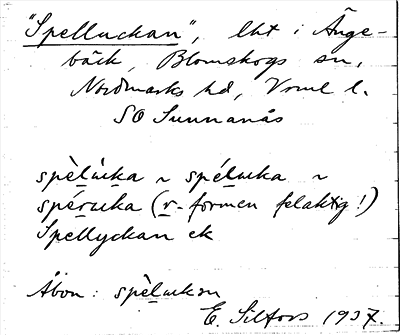 "Spelluckan", lht i Ånge-
bäck, Blomskogs sn,
Nordmarks hd, Vrml l.
SO Sunnanås
spèlùka ~ spéluka ~
spéruka (r-formen felaktig!)
Spellyckan ek
Åbon: spèlukon
E. Silfors 1937.